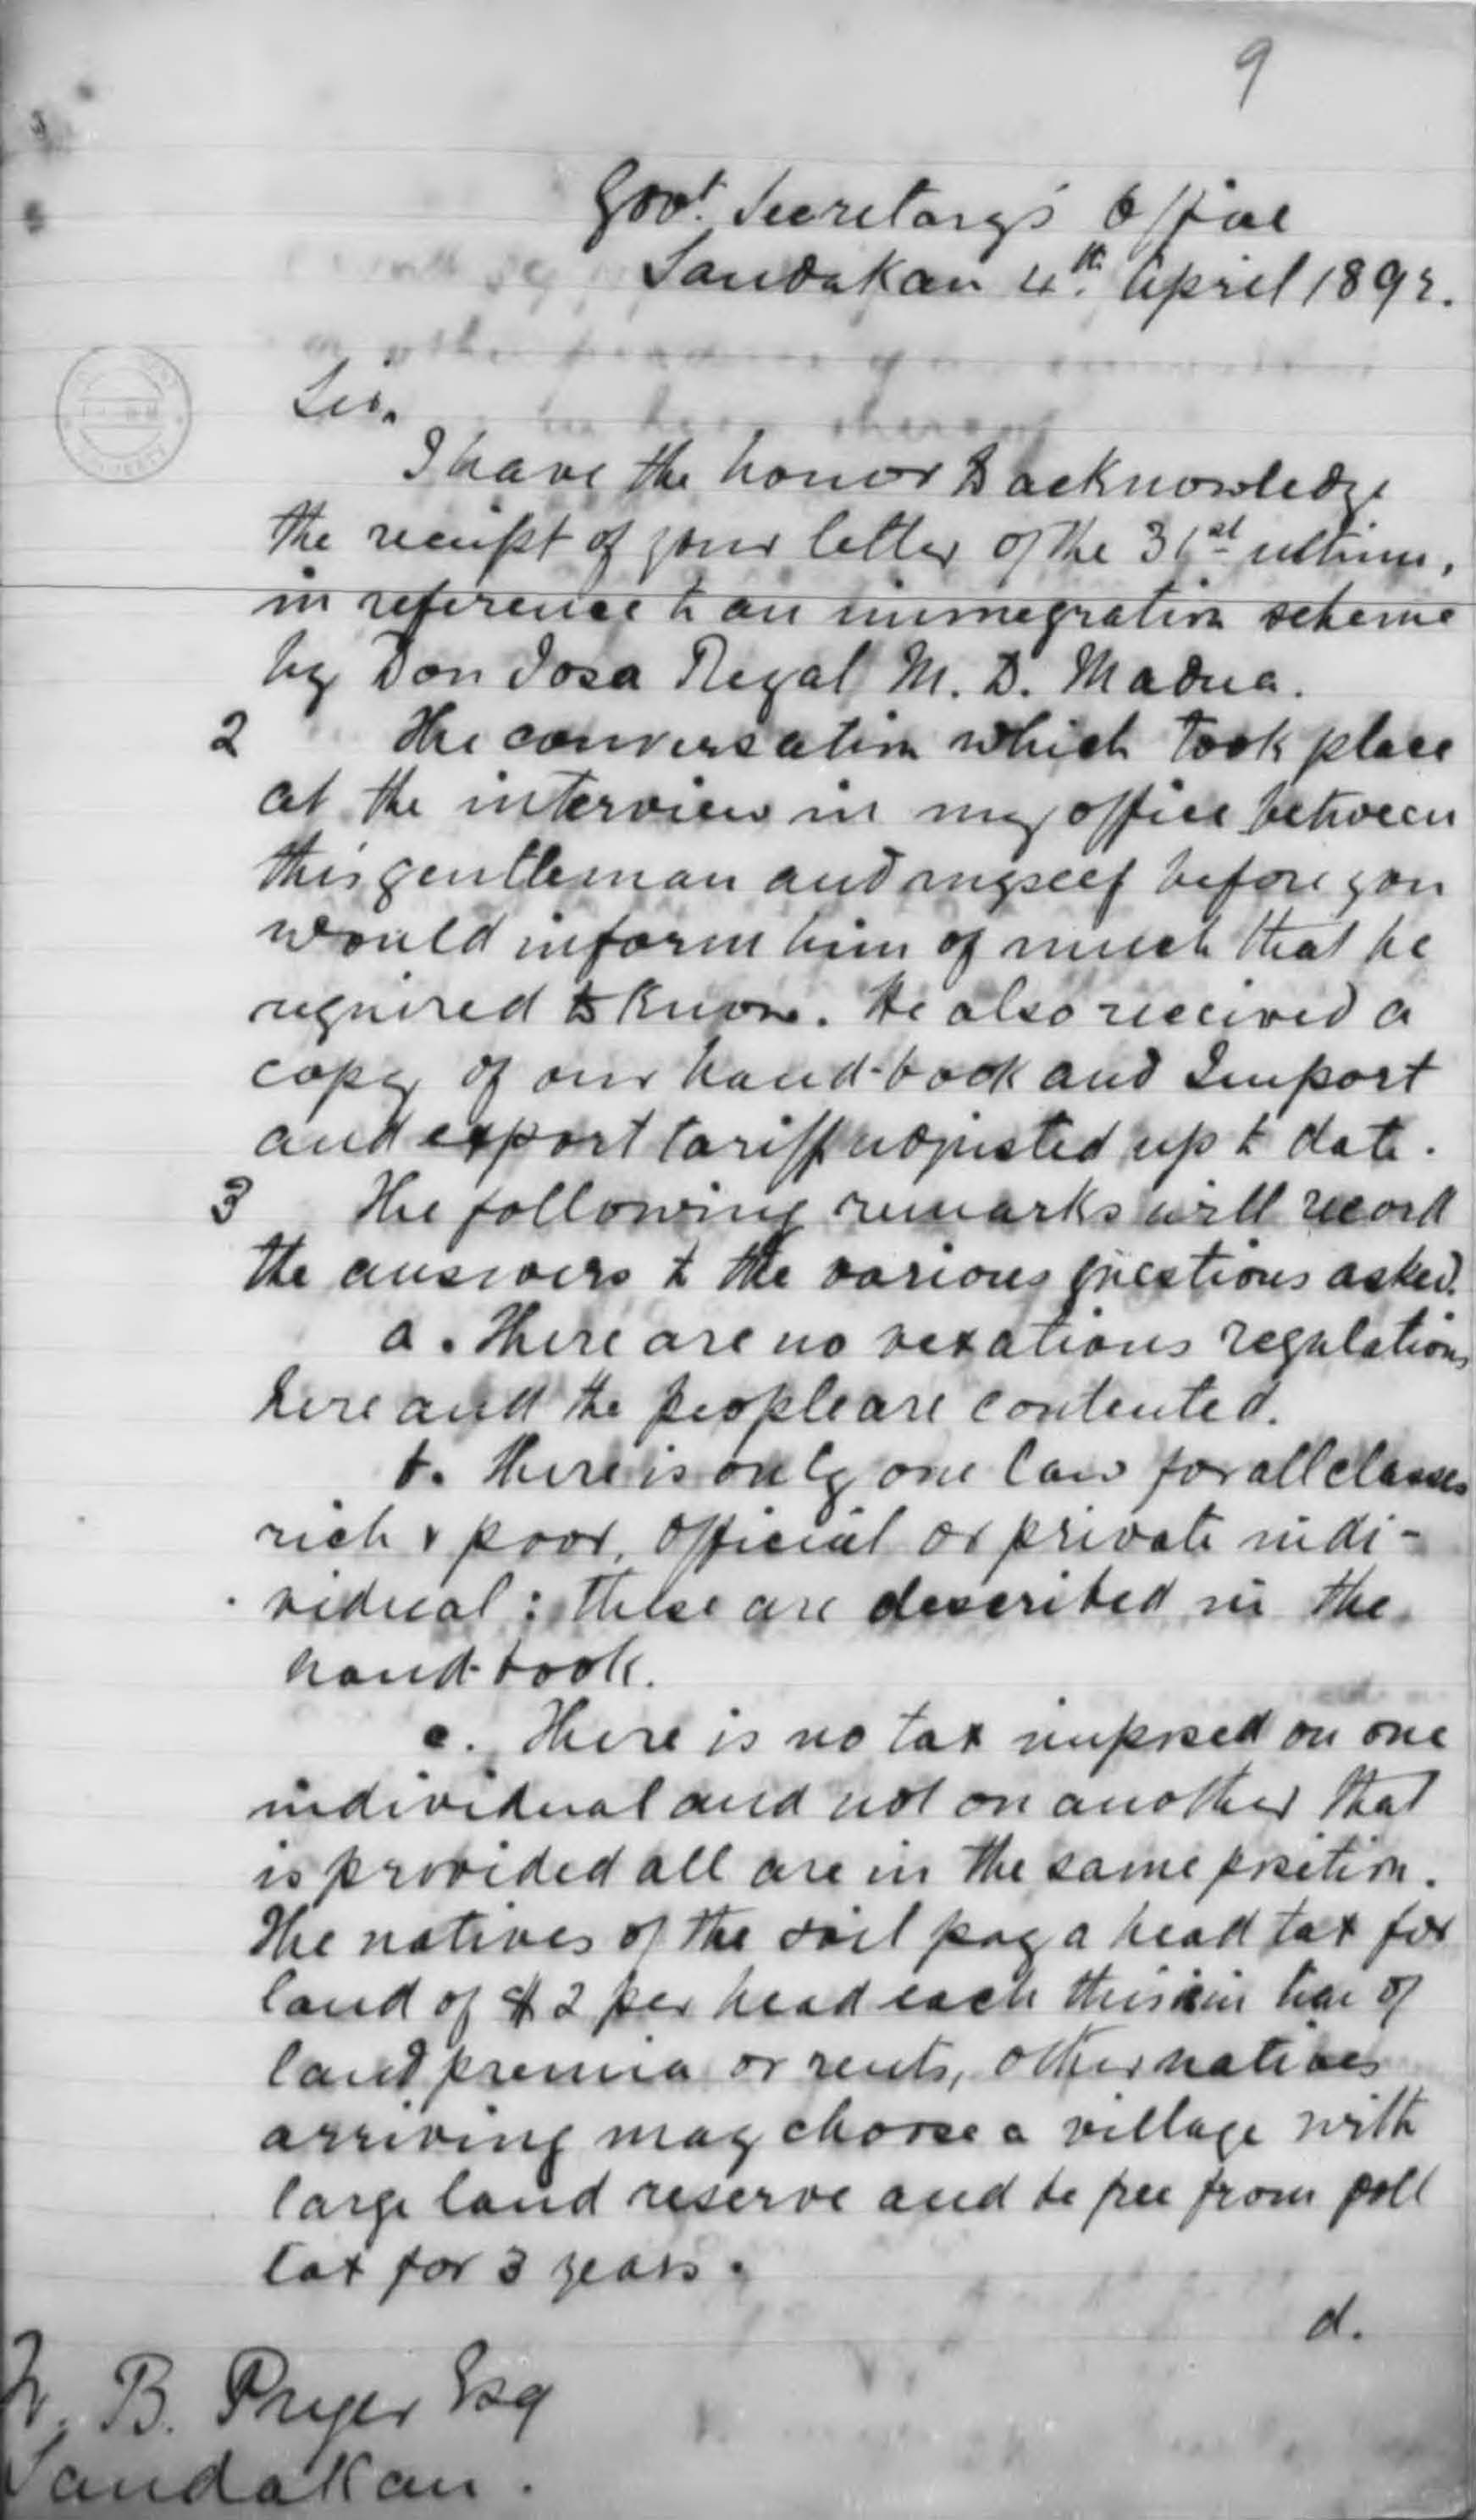 9
Govt. Secretary's Office
Sandakan 4th. April 1892.
Sir.
I have the honor to acknowledge
the receipt of your letter of the 31st ultimo,
in reference to an immegration scheme
by Don Josa Regal M. D. Madua.
2 The conversation which took place
at the interview in my office between
this gentleman and myself before you
would inform him of much that he
required to know. He also received a
copy of our hand-book and Import
and export tariff adjusted up to date.
3 The following remarks will record
the answers to the various questions asked.
a. There are no vexatious regulations
here and the people are contented.
b. There is only one law for all classes
rich & poor, official or private indi-
vidual: these are described in the
hand-book.
c. There is no tax imposed on one
individual and not on another that
is provided all are in the same position.
The natives of the soil pay a head tax for
land of $2 per head each this is in lieu of
land premia or rents, other natives
arriving may choose a village with
large land reserve and be free from poll
tax for 3 years.
d.
W. B. Pryer Esq
Sandakan.